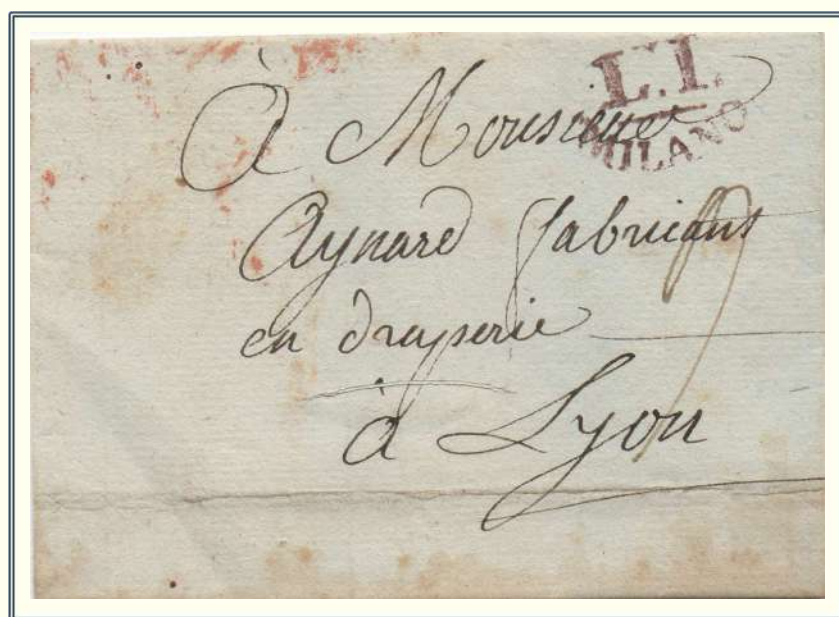 L.I.
MILANO
À Monsieur
Aynard fabricant
en draperie
à Lyon
9